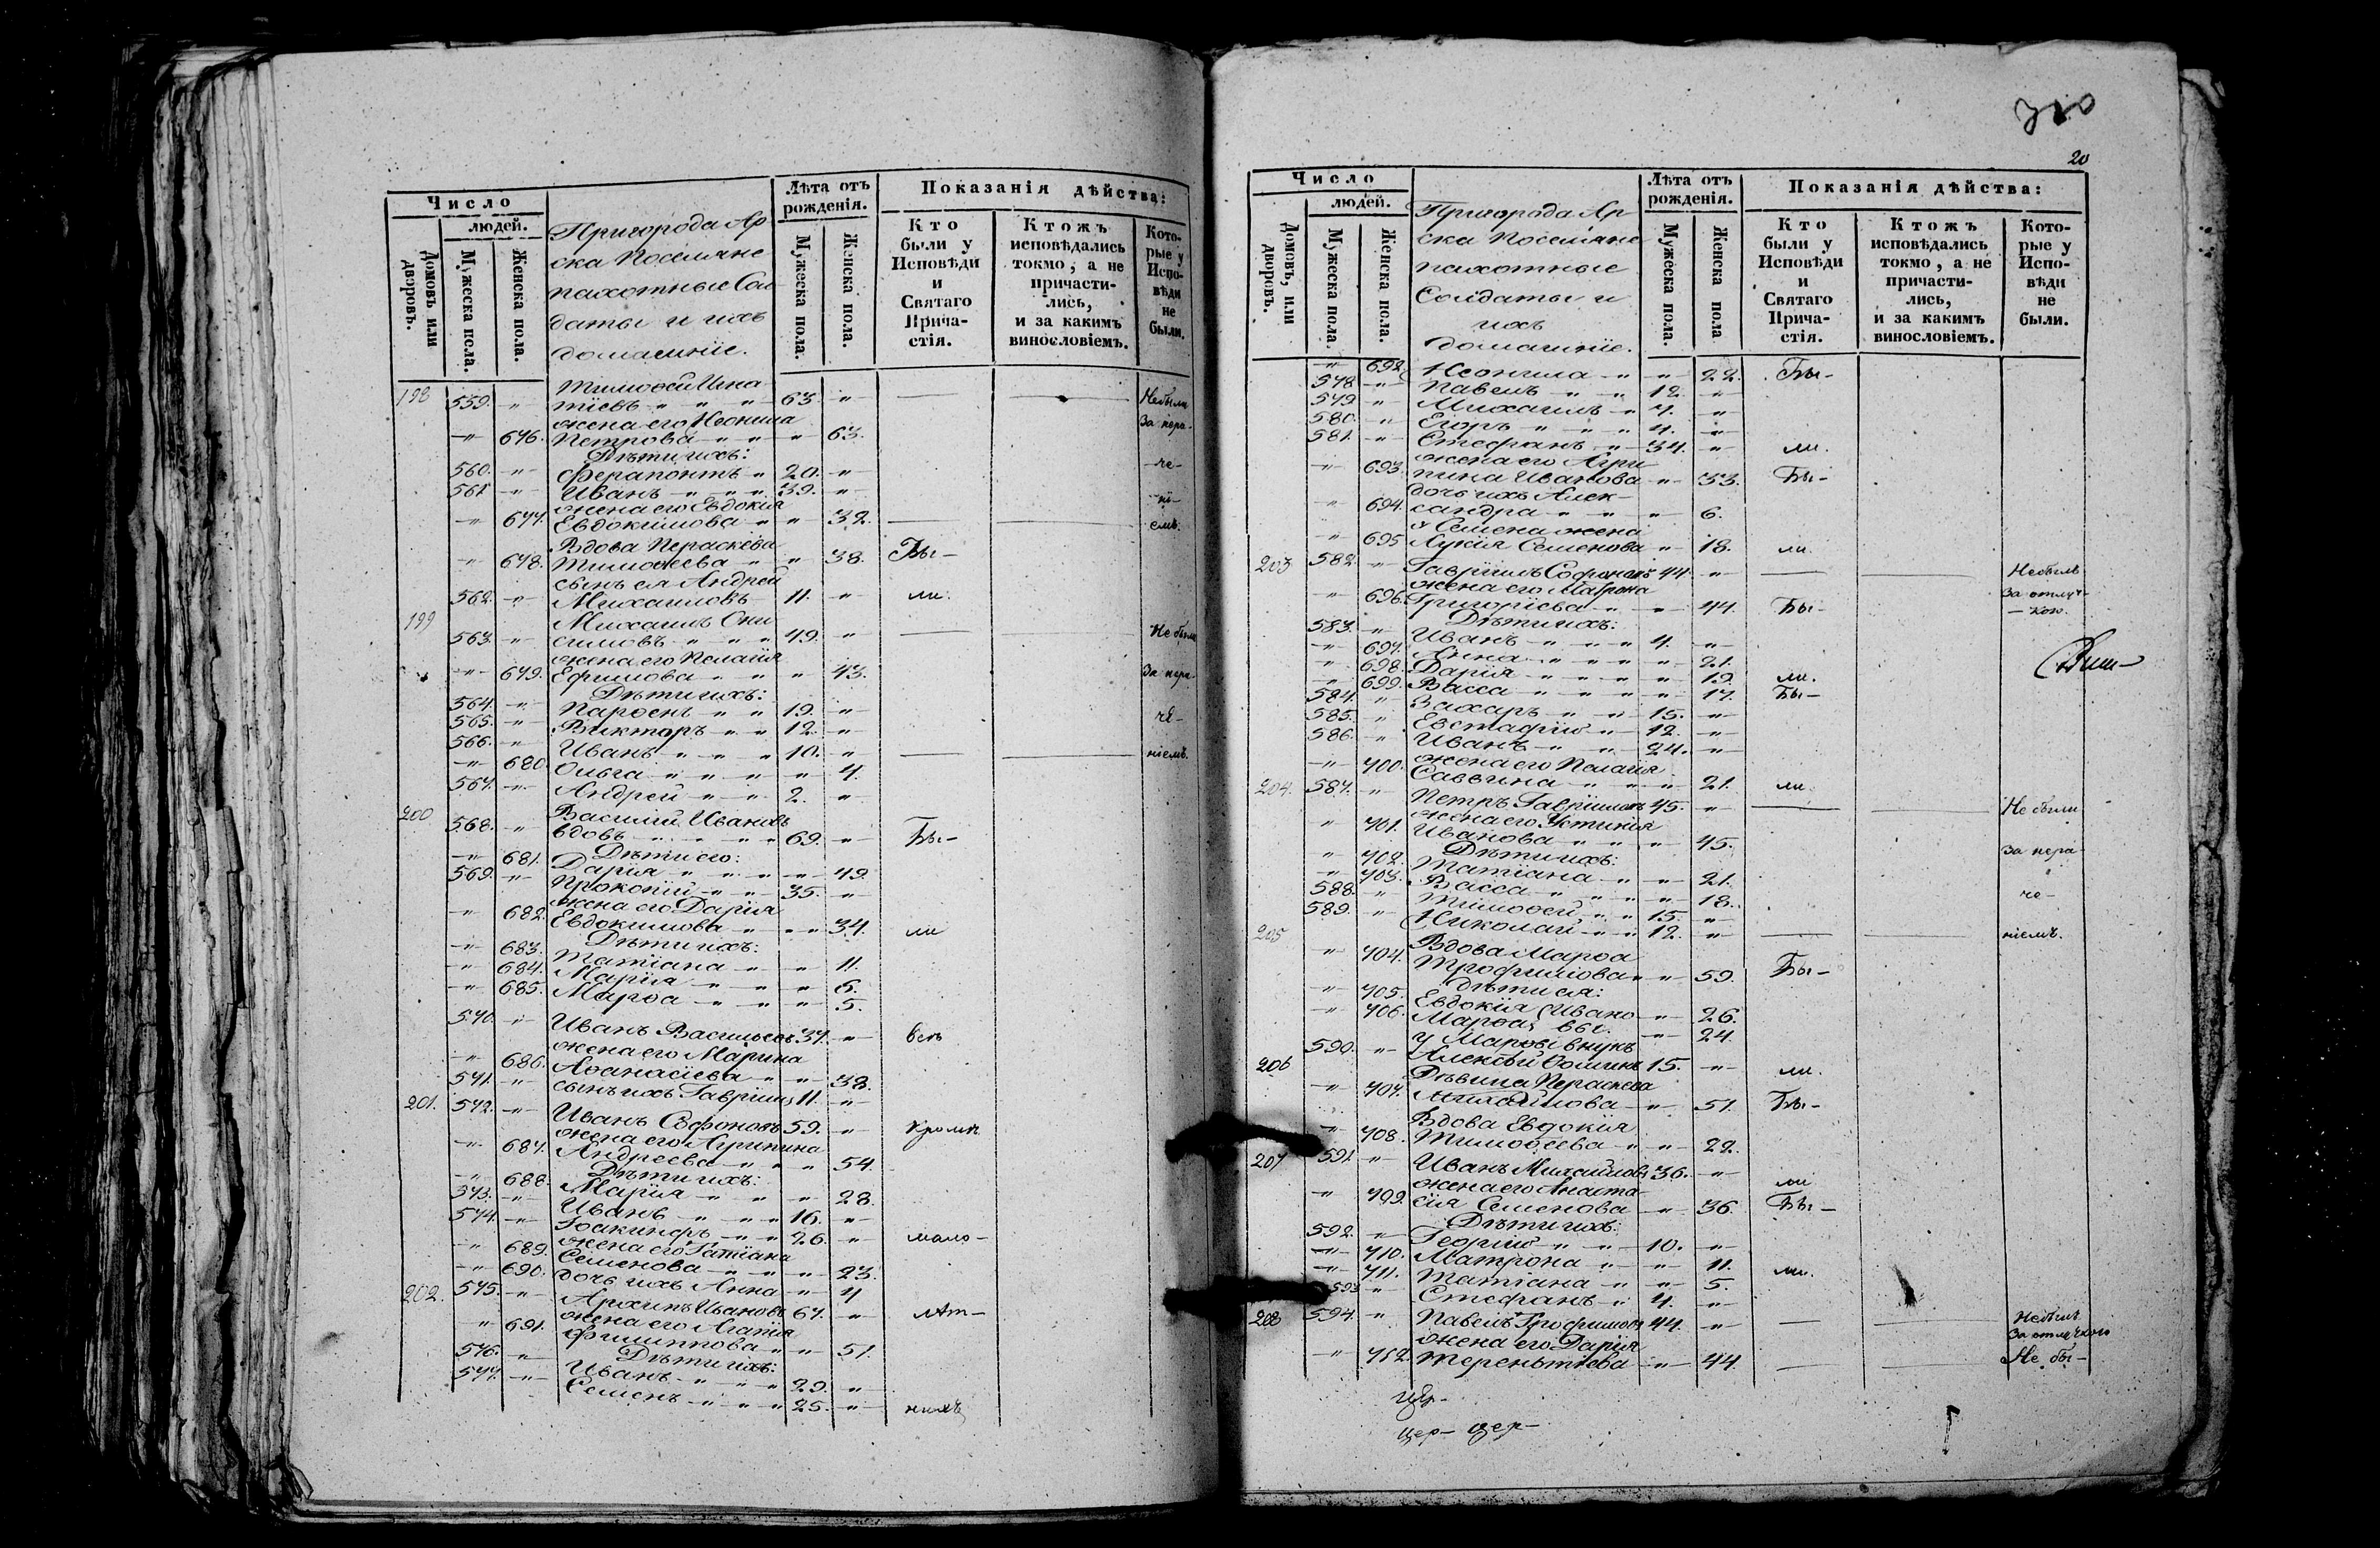 Число
людей.
Домовъ или дворовъ.
Мужеска пола.
Женска пола.
Пригорода Ар
ска Поселяне
пахотные Сол
даты и ихъ
домашніе.
Лѣта отъ
рожденія.
Мужеска пола.
Женска пола.
Показанія дѣйства:
Кто
были у
Исповѣди
и
Святаго
Прича-
стія.
Ктожъ
исповѣдались
токмо, а не
причасти-
лись,
и за какимъ
винословіемъ.
Кото-
рые у
Испо-
вѣди
не
были.
Тимоѳей Игна
198 559. -"- тіевъ " " " 63 -"- Небыли
жена его Неонила За нера-
-"- 676. Петрова " " " 63.
Дѣти ихъ:
560. -"- Ферапонтъ " 20. -"- че-
561 -"- Иванъ " " " 39. -"-
жена его Евдокія ні-
-"- 677. Евдокимова " " 32. емъ.
Вдова Параскева
-"- 678. Тимоѳеева " " 38. Бы-
сынъ ея Андрей
562. -"- Михаиловъ 11. " ли.
199 Михаилъ Они
563. -"- симовъ " " " 49. " Не были
жена его Пелагія
-"- 679. Ефимова " " " 43. За нера-
Дѣти ихъ:
564. -"- Парѳенъ " " 19. -"-
565. -"- Викторъ " " 12. -"- че-
566. -"- Иванъ " " " 10. " ніемъ.
-"- 680. Ольга " " " " 4.
567. -"- Андрей " " 2. "
200 Василій Ивановъ
568. -"- вдовъ " " " " 69. -"- Бы-
Дѣти его:
-"- 681. Дарія " " " " 49.
569. -"- Прокопій " " 35. -"-
жена его Дарія
-"- 682. Евдокимова " " " 34. ли
Дѣти ихъ:
-"- 683. Татіана " " 11.
-"- 684. Марія " " " 6.
-"- 685. Марѳа " " " 5.
570. -"- Иванъ Васильевъ 37. -"- всѣ
жена его Марина
-"- 686. Аѳанасіева " " 38.
571. -"- сынъ ихъ Гавріилъ 11. -"-
201. 572. -"- Иванъ Софоновъ 59. -"- кромѣ
жена его Агрипина
-"- 687. Андреева " " " 54.
Дѣти ихъ:
-"- 688. Марія " " " 28.
573. -"- Иванъ " " " 16. -"-
574. -"- Іоакинфъ " " 26. -"- мало-
жена его Татіана
-"- 689. Семенова " " " 23.
-"- 690. дочь ихъ Анна " 4
202. 575. -"- Архипъ Ивановъ 67. -"- лѣт-
жена его Агапія
" 691. Филиппова " " 51.
Дѣти ихъ:
576. -"- Иванъ " " " 29. -"-
577. -"- Семенъ " " " 25. -"- нихъ
310
20
Число
людей.
Домовъ, или дворовъ.
Мужеска пола.
Женска пола.
Пригорода Ар
ска Поселяне
пахотные
Солдаты и
ихъ
домашніе.
Лѣта отъ
рожденія.
Мужеска пола.
Женска пола
Показанія дѣйства:
Кто
были у
Исповѣди
и
Святаго
Прича-
стія.
Ктожъ
исповѣдались
токмо, а не
причасти-
лись,
и за какимъ
винословіемъ.
Кото-
рые у
Испо-
вѣди
не
были.
-"- 692. Неонила " " 22. Бы-
578. -"- Павелъ " " 12. -"-
579. " Михаилъ " 7. "
580. " Егоръ " " " 4. -"-
581. -"- Стефанъ " 34. -"- ли.
жена его Агри-
-"- 693. пина Иванова " 33. Бы-
дочь ихъ Алек-
-"- 694. сандра " " " 6.
Семена жена
-"- 695 Лукія Семенова " 18. ли.
203 582. -"- Гавріилъ Софоновъ 44. -"- Небылъ
жена его Матрона за отлуч-
-"- 696. Григоріева " " 44. Бы- -кою.
Дѣти ихъ:
583. -"- Иванъ " " " 4. -"-
-"- 697. Анна " " " " 21.
" 698. Дарія " " " " 19. ли.
" 699. Васса " " " " 17. Бы-
584. " Захаръ " " 15. -"-
585. " Евстафій " 12. -"-
586. " Иванъ " " 24. -"-
жена его Пелагія
-"- 700. Саввина " " " 21. ли.
204. 587. " Петръ Гавріиловъ 45. " Не были
жена его Устинія
" 701. Иванова " " " 45. За нера-
Дѣти ихъ:
" 702. Татіана " " 21.
" 703. Васса " " " " 18.
588. " Тимоѳей " " 15. " че-
589. " Николай " " 12. " ніемъ.
205 Вдова Марѳа
" 704. Трофимова " " 59. Бы-
дѣти ея:
-"- 705. Евдокія (Ивано " 26.
-"- 706. Марѳа вы. -"- 24.
у Марѳы внукъ
590. -"- Алексѣй Ѳоминъ 15. -"- ли.
206 Дѣвица Параскева
-"- 707. Михайлова " 51. Бы-
Вдова Евдокія
-"- 708. Тимоѳеева " " 22.
207 591. -"- Иванъ Михайловъ 36. -"- ли
жена его Анаста-
-"- 709. сія Семенова " 36. Бы-
Дѣти ихъ:
592. -"- Георгій " " 10. "
-"- 710. Матрона " " 11. ли.
-"- 711. Татіана " " 5.
593 -"- Стефанъ " 4. -"-
208 594. -"- Павелъ Трофимовъ 44. " Небылъ
за отлучкою
жена его Дарія
-"- 712. Терентіева " 44. Не бы-
цер-
цер- цер-